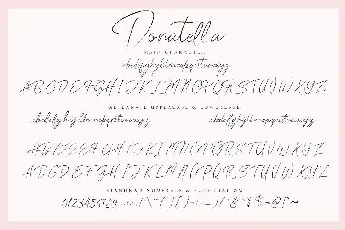 Donatella
MAIN CHARACTER
abcdefghijklmnopqrstuvwxyz
ABCDEFGHIJKLMNOPQRSTUVWXYZ
ALTERNATE UPPERCASE & LOWERCASE
abcdefghijklmnopqrstuvwxyz abcdefghijklmnopqrstuvwxyz
ABCDEFGHIJKLMNOPQRSTUVWXYZ
ABCDEFGHIJKLMNOPQRSTUVWXYZ
STANDARD NUMERALS & PUNCTUATION